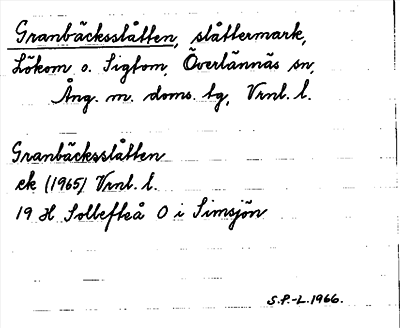 Granbäcksslåtten, slåttermark,
Lökom o. Sigtom, Överlännäs sn,
Ång. m. doms. tg, Vrnl. l.
Granbäcksslåtten
ek (1965) Vrnl. l.
19 H Sollefteå O i Simsjön
S.P.-L. 1966.